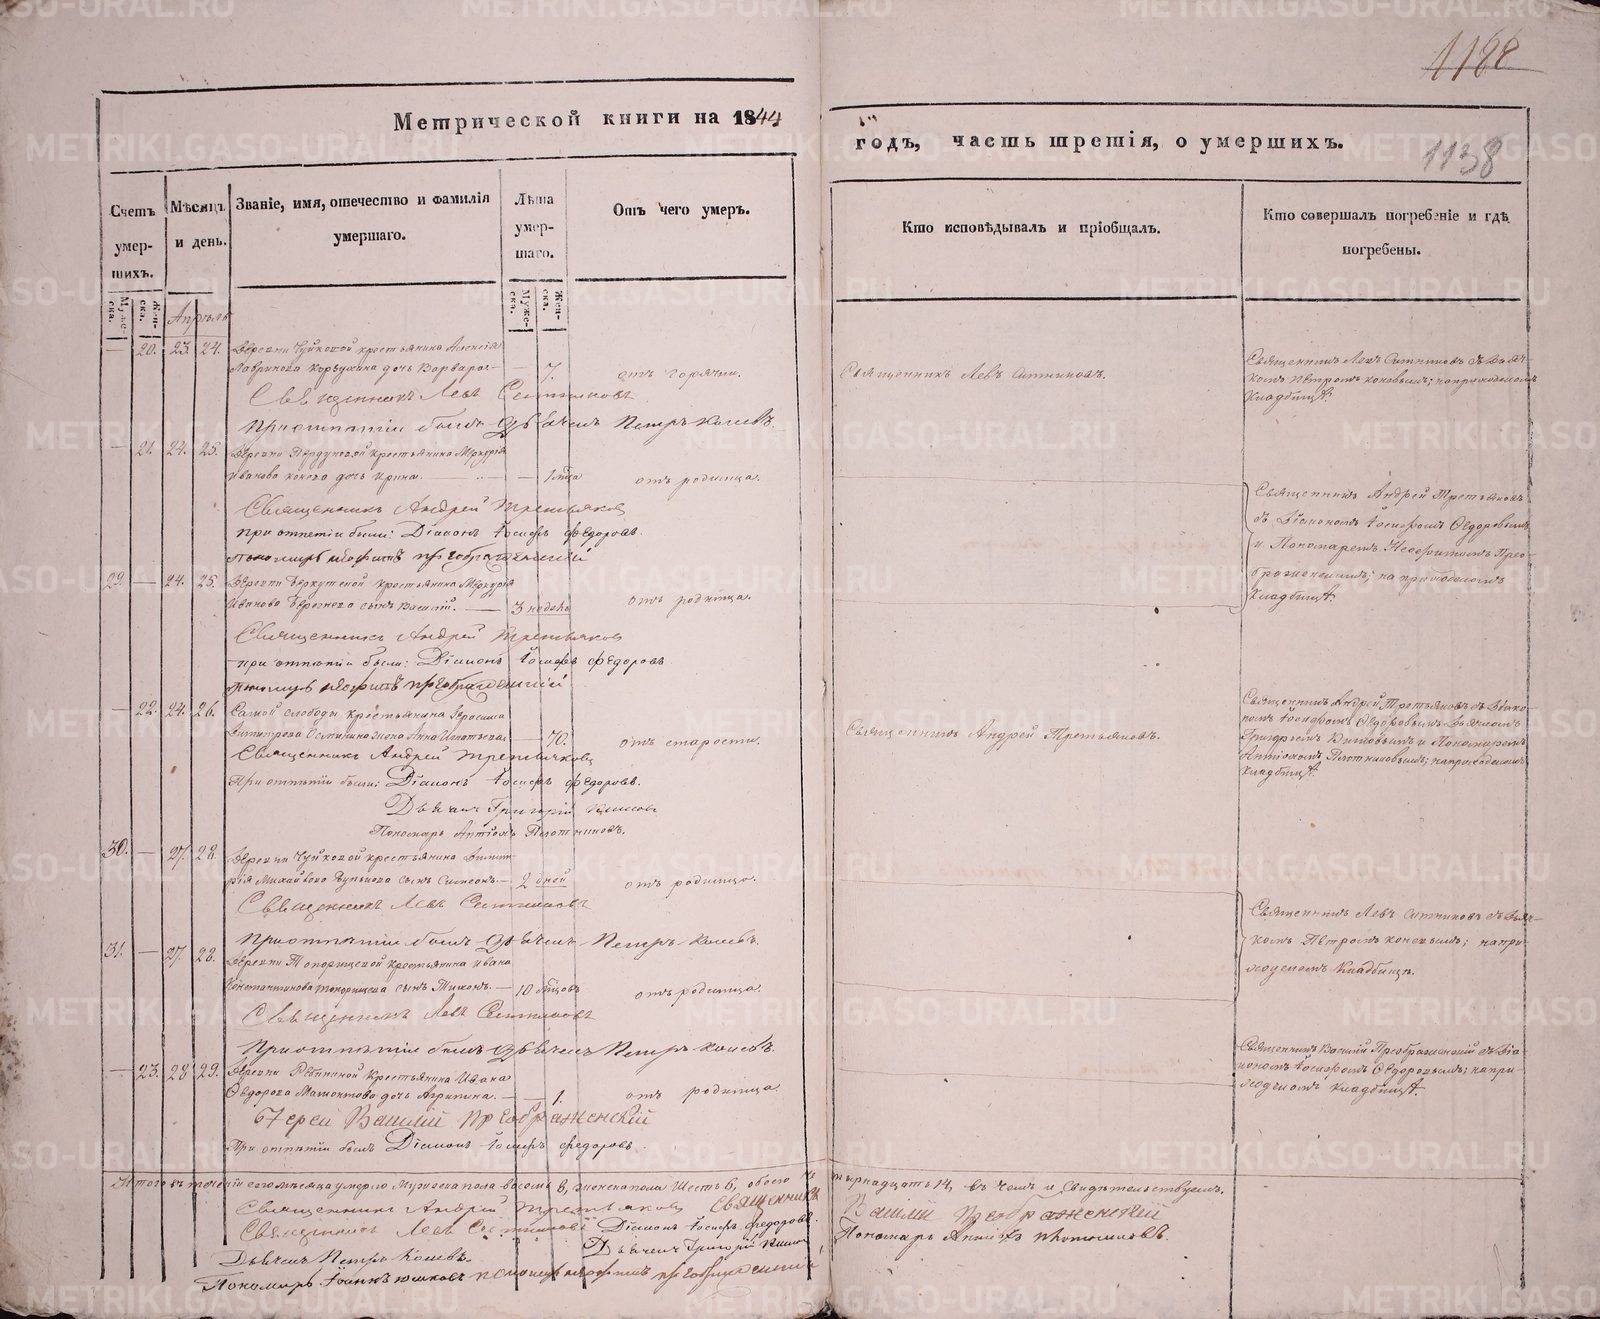 1188
Метрической книги на 1844
годъ, часть третія, о умершихъ.
1138
Счетъ умер-шихъ.
Мѣсяцъ и день.
Званіе, имя, отечество и фамилія умершаго.
Лѣта умер-шаго.
Отъ чего умеръ.
Кто исповѣдывалъ и пріобщалъ.
Кто совершалъ погребеніе и гдѣ погребены.
Муже-ска.
Жен-ска.
Муже-ска.
Жен-ска.
Апрѣль
— 20. 23. 24. Деревни Чуйковой крестьянина Алексѣя
дочь Варвара — 7. отъ горячки. Священникъ Левъ Ситниковъ.
Священникъ Левъ Ситниковъ съ Дьяч-
комъ Петромъ Коневымъ; на приходскомъ
кладбищѣ.
Священникъ Левъ Ситниковъ
При отпѣтіи былъ Дьячекъ Петръ Коневъ.
— 21. 24. 25. Деревни крестьянина Меркурія
Иванова дочь Ирина. — 1 мѣсца отъ родимца.
Священникъ Андрей Третьяковъ
съ Діакономъ Іосифомъ Ѳедоровымъ
и Пономаремъ Неофитомъ Прео-
браженскимъ; на приходскомъ
кладбищѣ.
Священникъ Андрей Третьяковъ
при отпѣтіи были: Діаконъ Іосифъ Федоровъ.
Пономарь Неофитъ Преображенскій
29. — 24. 25. Деревни крестьянина Меркурія
Иванова сынъ Василій. — 3 недель отъ родимца.
Священникъ Андрей Третьяковъ
при отпѣтіи были: Діаконъ Іосифъ Федоровъ
Пономарь Неофитъ Преображенскій
— 22. 24. 26. Самой слободы крестьянина Герасима
Димитріева жена Анна Игнатьева — 70. отъ старости. Священникъ Андрей Третьяковъ.
Священникъ Андрей Третьяковъ съ Діако-
номъ Іосифомъ Ѳедоровымъ Дьячкомъ
Григоріемъ и Пономаремъ
Плотниковымъ; на приходскомъ
кладбищѣ.
Священникъ Андрей Третьяковъ
При отпѣтіи были: Діаконъ Іосифъ Федоровъ.
Дьячекъ Григорій
Пономарь Плотниковъ.
30. — 27. 28. Деревни Чуйковой крестьянина Димит-
рія Михайлова сынъ Симеонъ. — 2 дней отъ родимца.
Священникъ Левъ Ситниковъ съ Дьяч-
комъ Петромъ Коневымъ; на при-
ходскомъ кладбищѣ.
Священникъ Левъ Ситниковъ
При отпѣтіи былъ Дьячекъ Петръ Коневъ.
31. — 27. 28. Деревни Топорищевой крестьянина Ивана
Константинова Топорищева сынъ Тихонъ. — 10 мѣсцовъ отъ родимца.
Священникъ Левъ Ситниковъ
При отпѣтіи былъ Дьячекъ Петръ Коневъ.
— 23. 28 29. Деревни Рѣпиной крестьянина Ивана
Ѳедорова Мамонтова дочь Агрипина. — 1. отъ родимца.
Священникъ Василій Преображенскій съ Діа-
кономъ Іосифомъ Ѳедоровымъ; на при-
ходскомъ кладбищѣ.
Іерей Василій Преображенскій
При отпѣтіи былъ Діаконъ Іосифъ Федоровъ.
Итого въ теченіи сего мѣсяца умерло Мужеска пола восемь 8, женска пола шесть 6, обоего четырнадцать 14, въ чемъ и свидѣтельствуемъ.
Священникъ Андрей Третьяковъ Священникъ Василій Преображенскій
Священникъ Левъ Ситниковъ Діаконъ Іосифъ Федоровъ.
Дьячекъ Григорій
Пономарь Плотниковъ.
Дьячекъ Петръ Коневъ.
Пономарь Іоаннъ Юшковъ Пономарь Неофитъ Преображенскій
METRIKI.GASO-URAL.RU